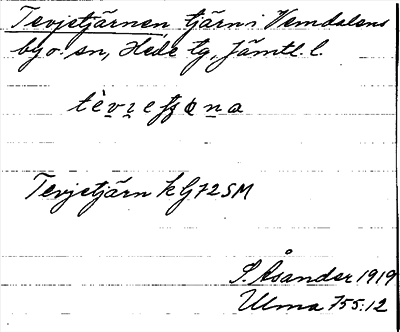 Tevjetjärnen, tjärn i Vemdalens
by o. sn, Hede tg, Jämtl. l.
Tevjetjärn k G 72 SM
S. Åsander 1919
Ulma 755:12